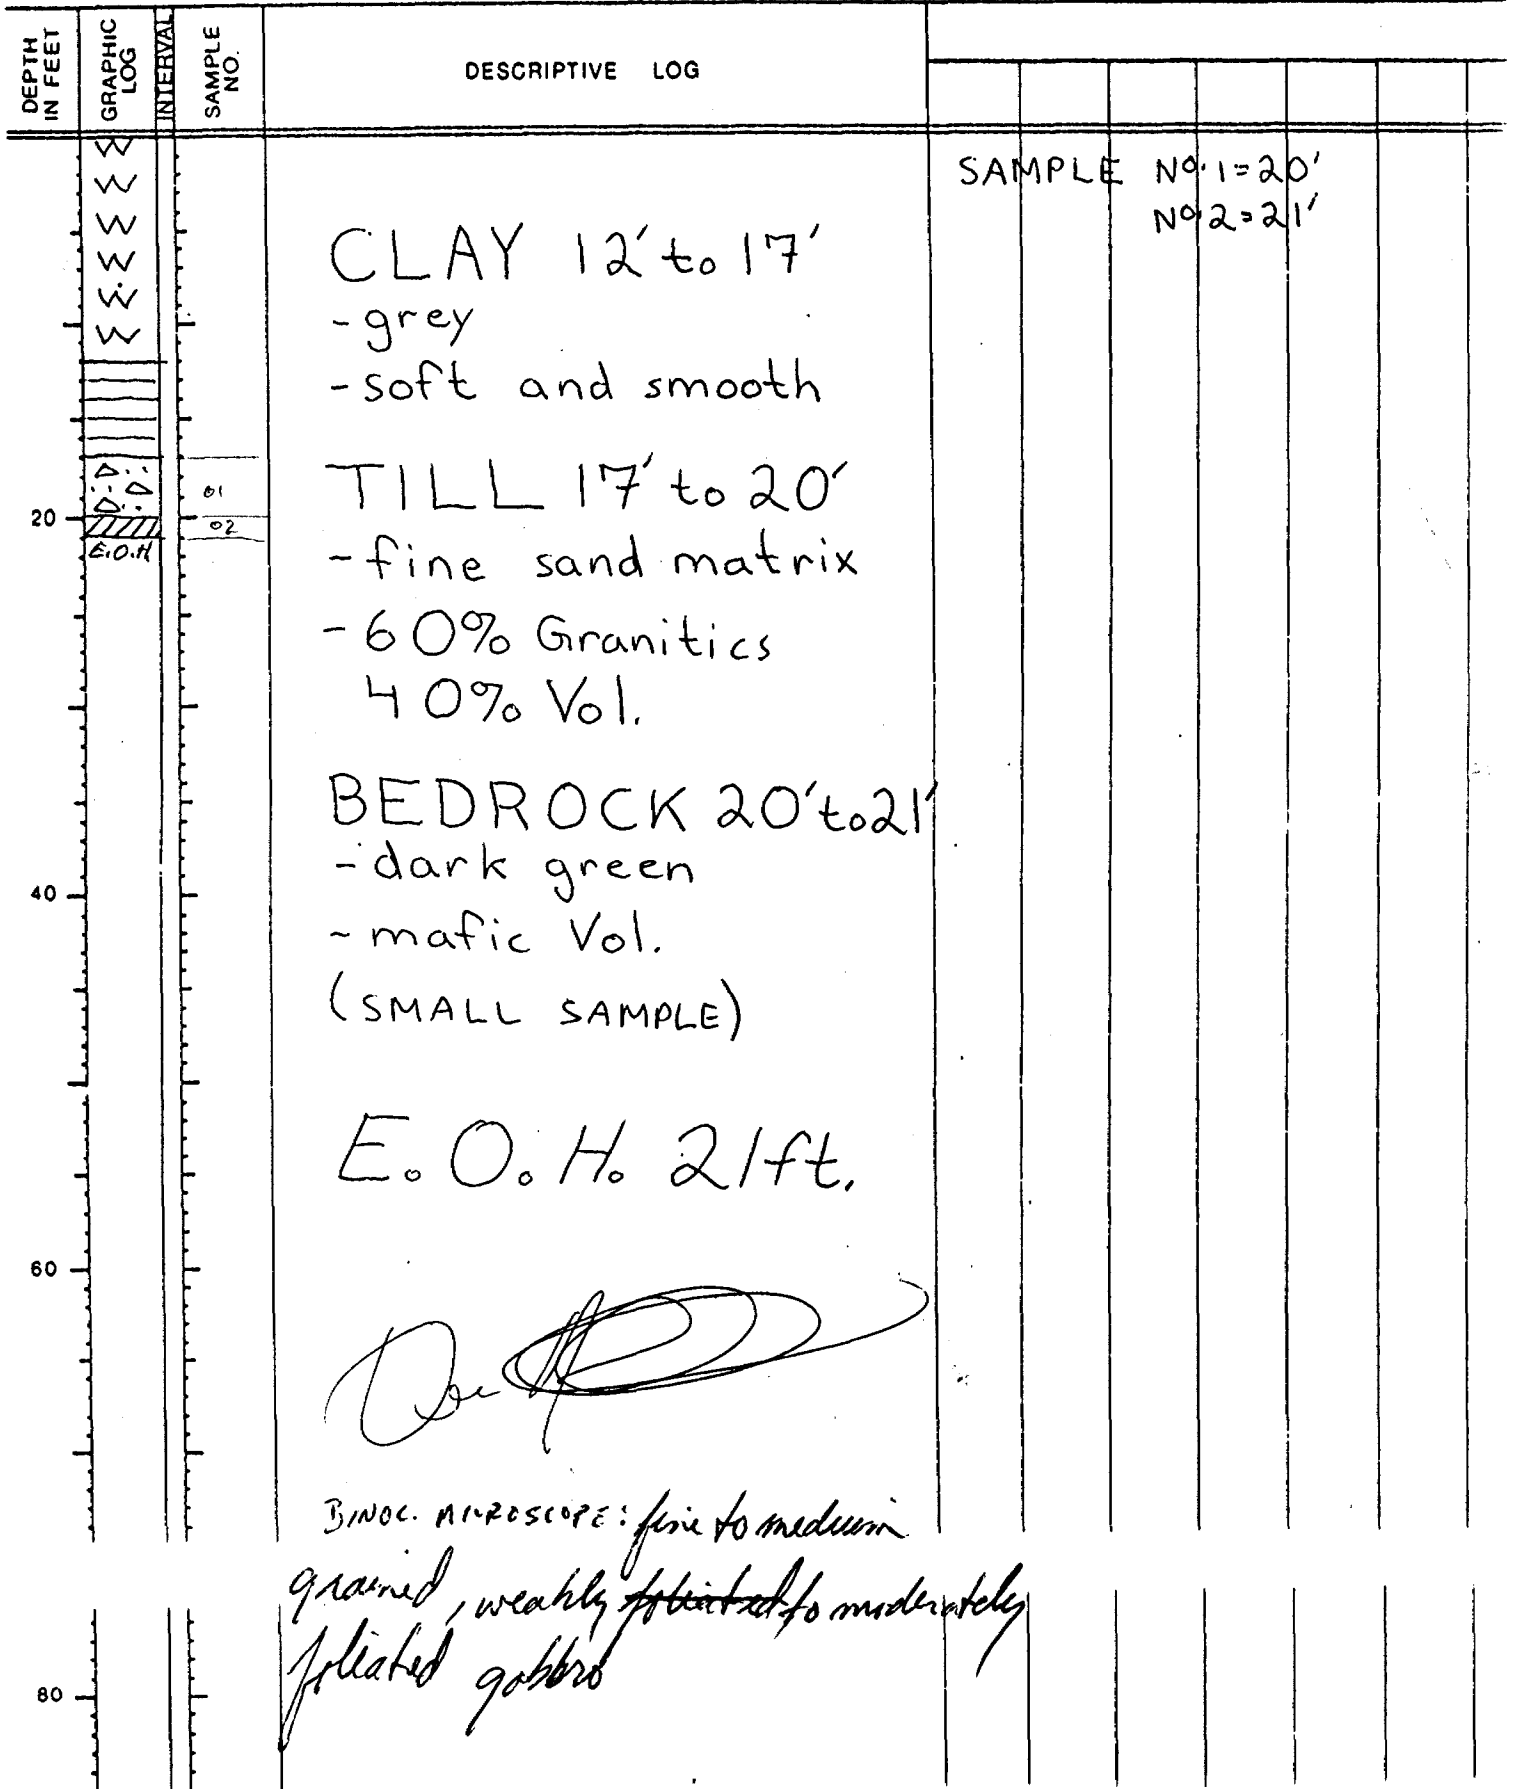 DEPTH IN FEET
GRAPHIC LOG
INTERVAL
SAMPLE NO.
DESCRIPTIVE LOG
SAMPLE No. 1 = 20'
No. 2 = 21'
W
W
W
W
W
W
CLAY 12' to 17'
- grey
- soft and smooth
TILL 17' to 20'
01
20
02
E.O.H
- fine sand matrix
- 60% Granitics
40% Vol.
BEDROCK 20' to 21'
- dark green
40
- mafic Vol.
(SMALL SAMPLE)
E.O.H. 21ft.
60
BINOC. MICROSCOPE: fine to medium
grained, weakly foliated to moderately
foliated gabbro
80